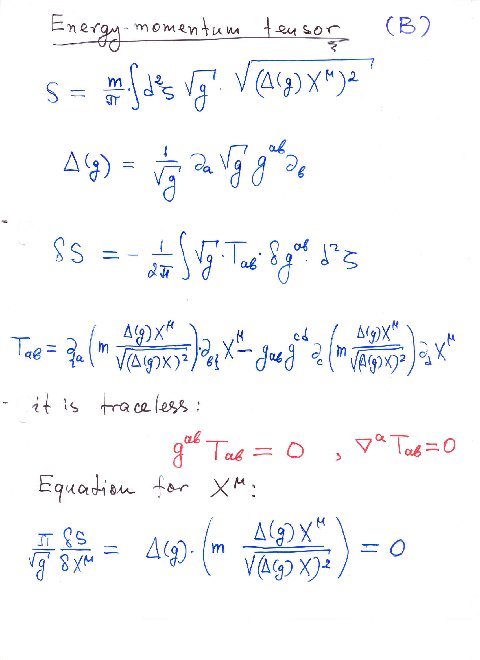 Energy-momentum tensor (B)
S = m/π ∫ d²ζ √g · √((Δ(g) X^μ)²)
Δ(g) = 1/√g ∂_a √g g^{ab} ∂_b
δS = - 1/2π ∫ √g · T_{ab} · δg^{ab} · d²ζ
T_{ab} = ∂_{{a} (m Δ(g)X^μ/√((Δ(g)X)²)) · ∂_{b}} X^μ - g_{ab} g^{cd} ∂_c (m Δ(g)X^μ/√((Δ(g)X)²)) ∂_d X^μ
- it is traceless:
g^{ab} T_{ab} = 0 , ∇^a T_{ab} = 0
Equation for X^μ:
π/√g δS/δX^μ = Δ(g) · (m Δ(g)X^μ/√((Δ(g)X)²)) = 0